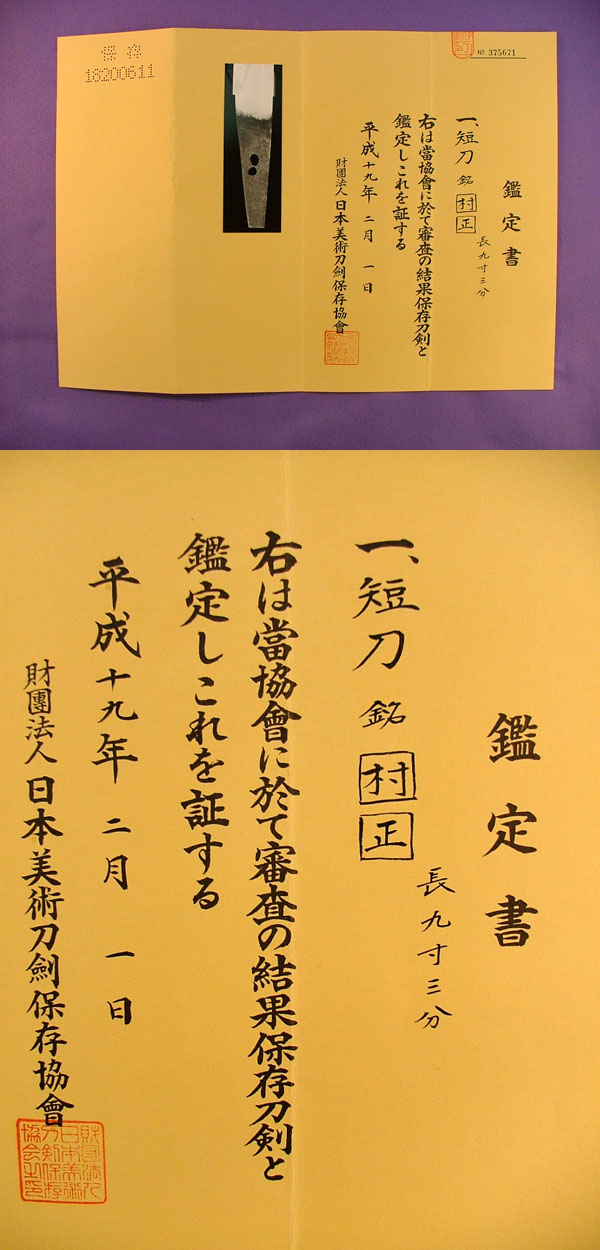 保存
18200611
No 375671
鑑定書
一、短刀 銘 村正
長九寸三分
右は當協會に於て審査の結果保存刀剣と
鑑定しこれを証する
平成十九年 二月 一日
財團法人 日本美術刀劍保存協會
鑑定書
一、短刀 銘 村正
長九寸三分
右は當協會に於て審査の結果保存刀剣と
鑑定しこれを証する
平成十九年 二月 一日
財團法人 日本美術刀劍保存協會
財団法人
日本美術
刀剣保存
協会之印